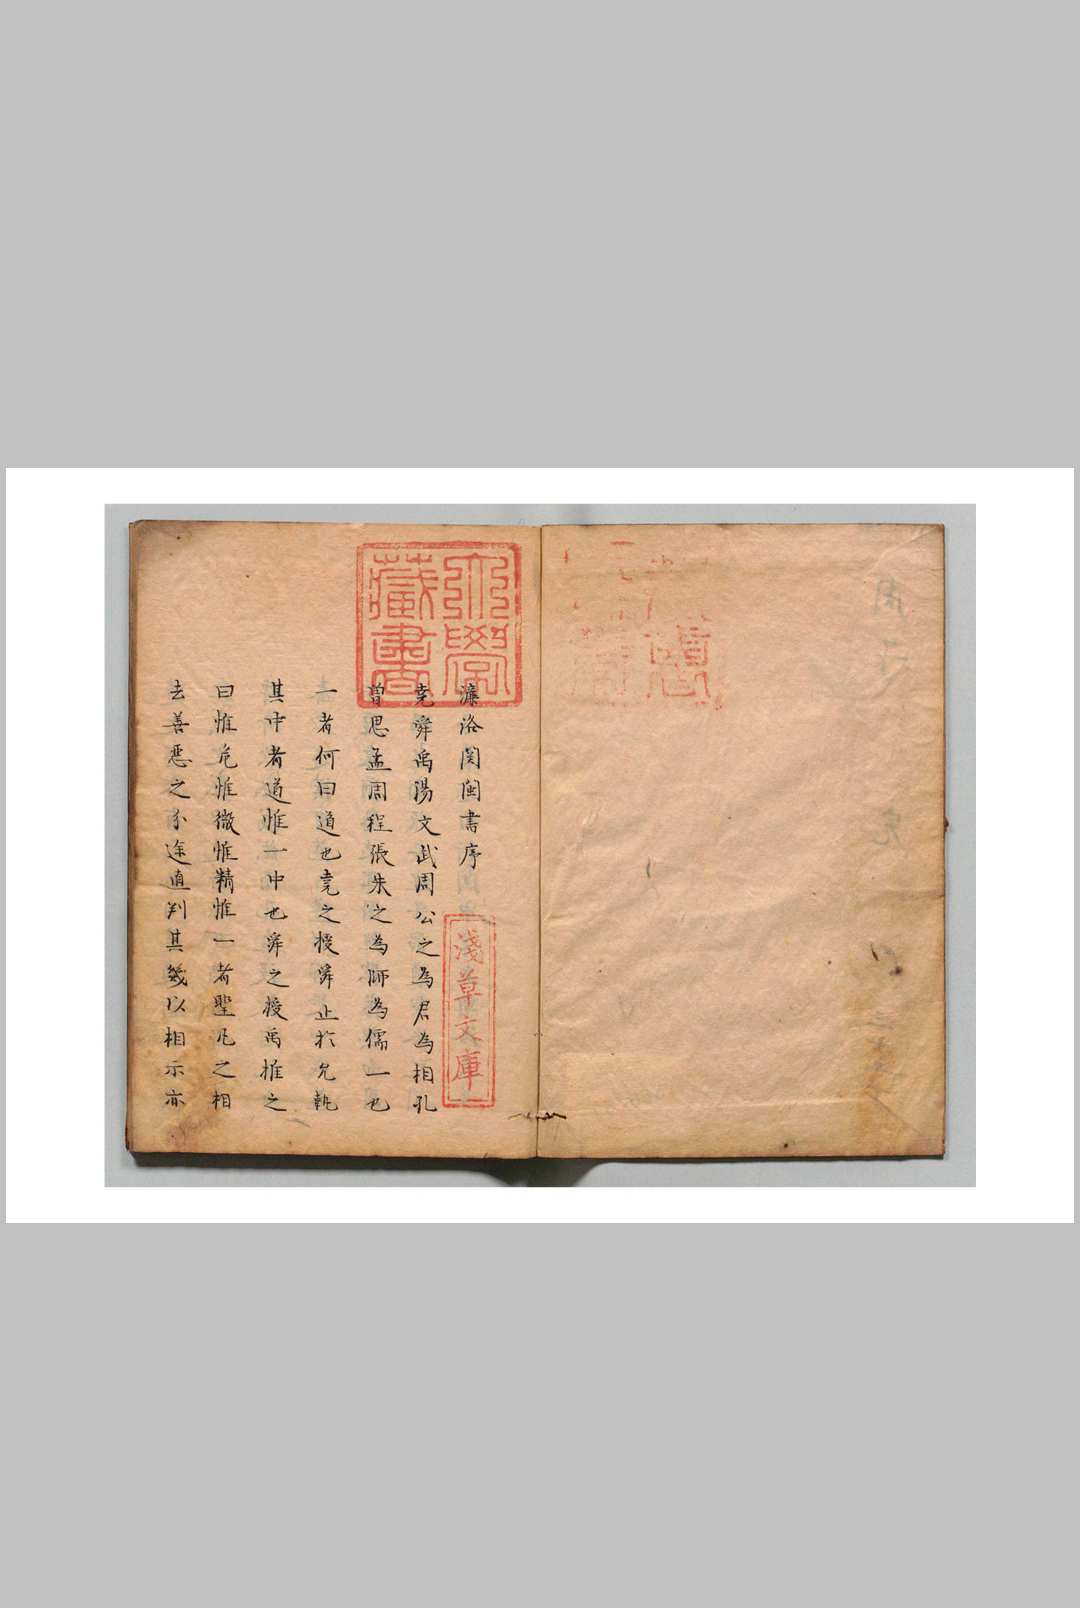 濂洛関閩書序
堯舜禹湯文武周公之為君為相孔
曽思孟周程張朱之為師為儒一也
一者何曰道也堯之授舜止於允執
其中者道惟一中也舜之授禹推之
曰惟危惟微惟精惟一者聖凡之相
去善惡之分途直判其幾以相示亦
大學
藏書
淺草文庫